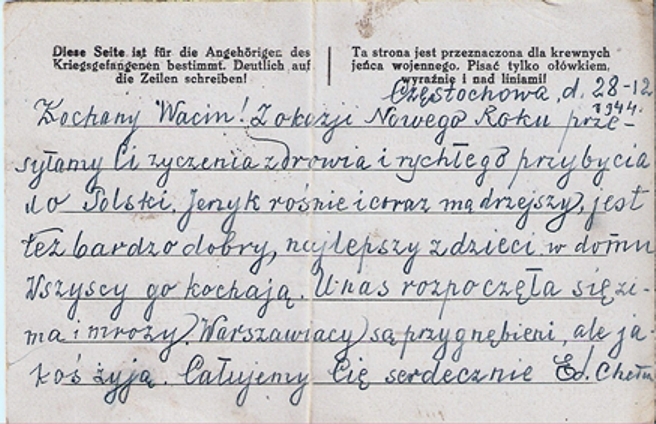 Diese Seite ist für die Angehörigen des
Kriegsgefangenen bestimmt. Deutlich auf
die Zeilen schreiben!
Ta strona jest przeznaczona dla krewnych
jeńca wojennego. Pisać tylko ołówkiem,
wyraźnie i nad liniami!
Częstochowa, d. 28-12
1944.
Kochany Wacin! Z okazji Nowego Roku prze-
syłamy Ci życzenia zdrowia i rychłego przybycia
do Polski. Jerzyk rośnie i coraz mądrzejszy, jest
też bardzo dobry, najlepszy z dzieci w domu
Wszyscy go kochają. U nas rozpoczęła się zi-
ma i mrozy. Warszawiacy są przygnębieni, ale ja-
koś żyją. Całujemy Cię serdecznie Ed.